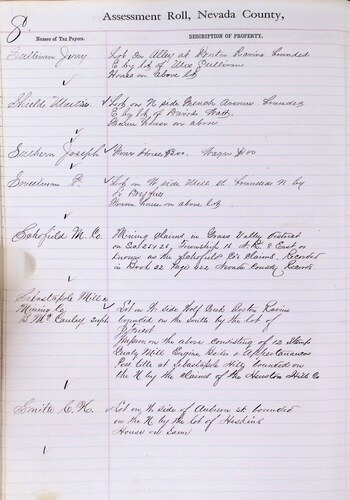 S.
Assessment Roll, Nevada County,
Names of Tax Payers.
DESCRIPTION OF PROPERTY.
Sullivan Jerry
Lot on Alley at Boston Ravine bounded
E by lot of Mrs Sullivan
House on above lot
Shields
Lot on N side French Avenue bounded
E by lot of Watt
Frame House on above
Suthern Joseph
Four Horses $200. Wagon $100
Sweetman P.
Lot on W side Mill St bounded N by
House on above lot
Schofield M. Co
Mining claims in Grass Valley District
on Township 16 N. R. 8 East
known as the Schofield Co claims. Recorded
in Book 22 Page 622 Nevada County Records
Sebastapole Mill &
Mining Co
Lot on W. side Wolf Creek Boston Ravine
bounded on the South by the lot of
on the above consisting of 12 Stamp
Quartz Mill Engine Boiler &
at Sebastapole Hill bounded on
the N by the claims of the Hill Co
Smith C. H.
Lot on W. side of Auburn St bounded
on the N by the lot of Hoskins
House on same